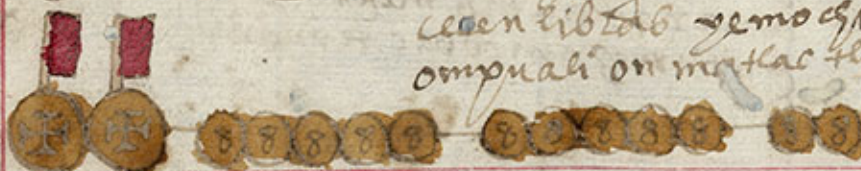 cecen libras yemocha
ompuali on matlac tl
8 8 8 8 8 8 8 8 8 8 8 8